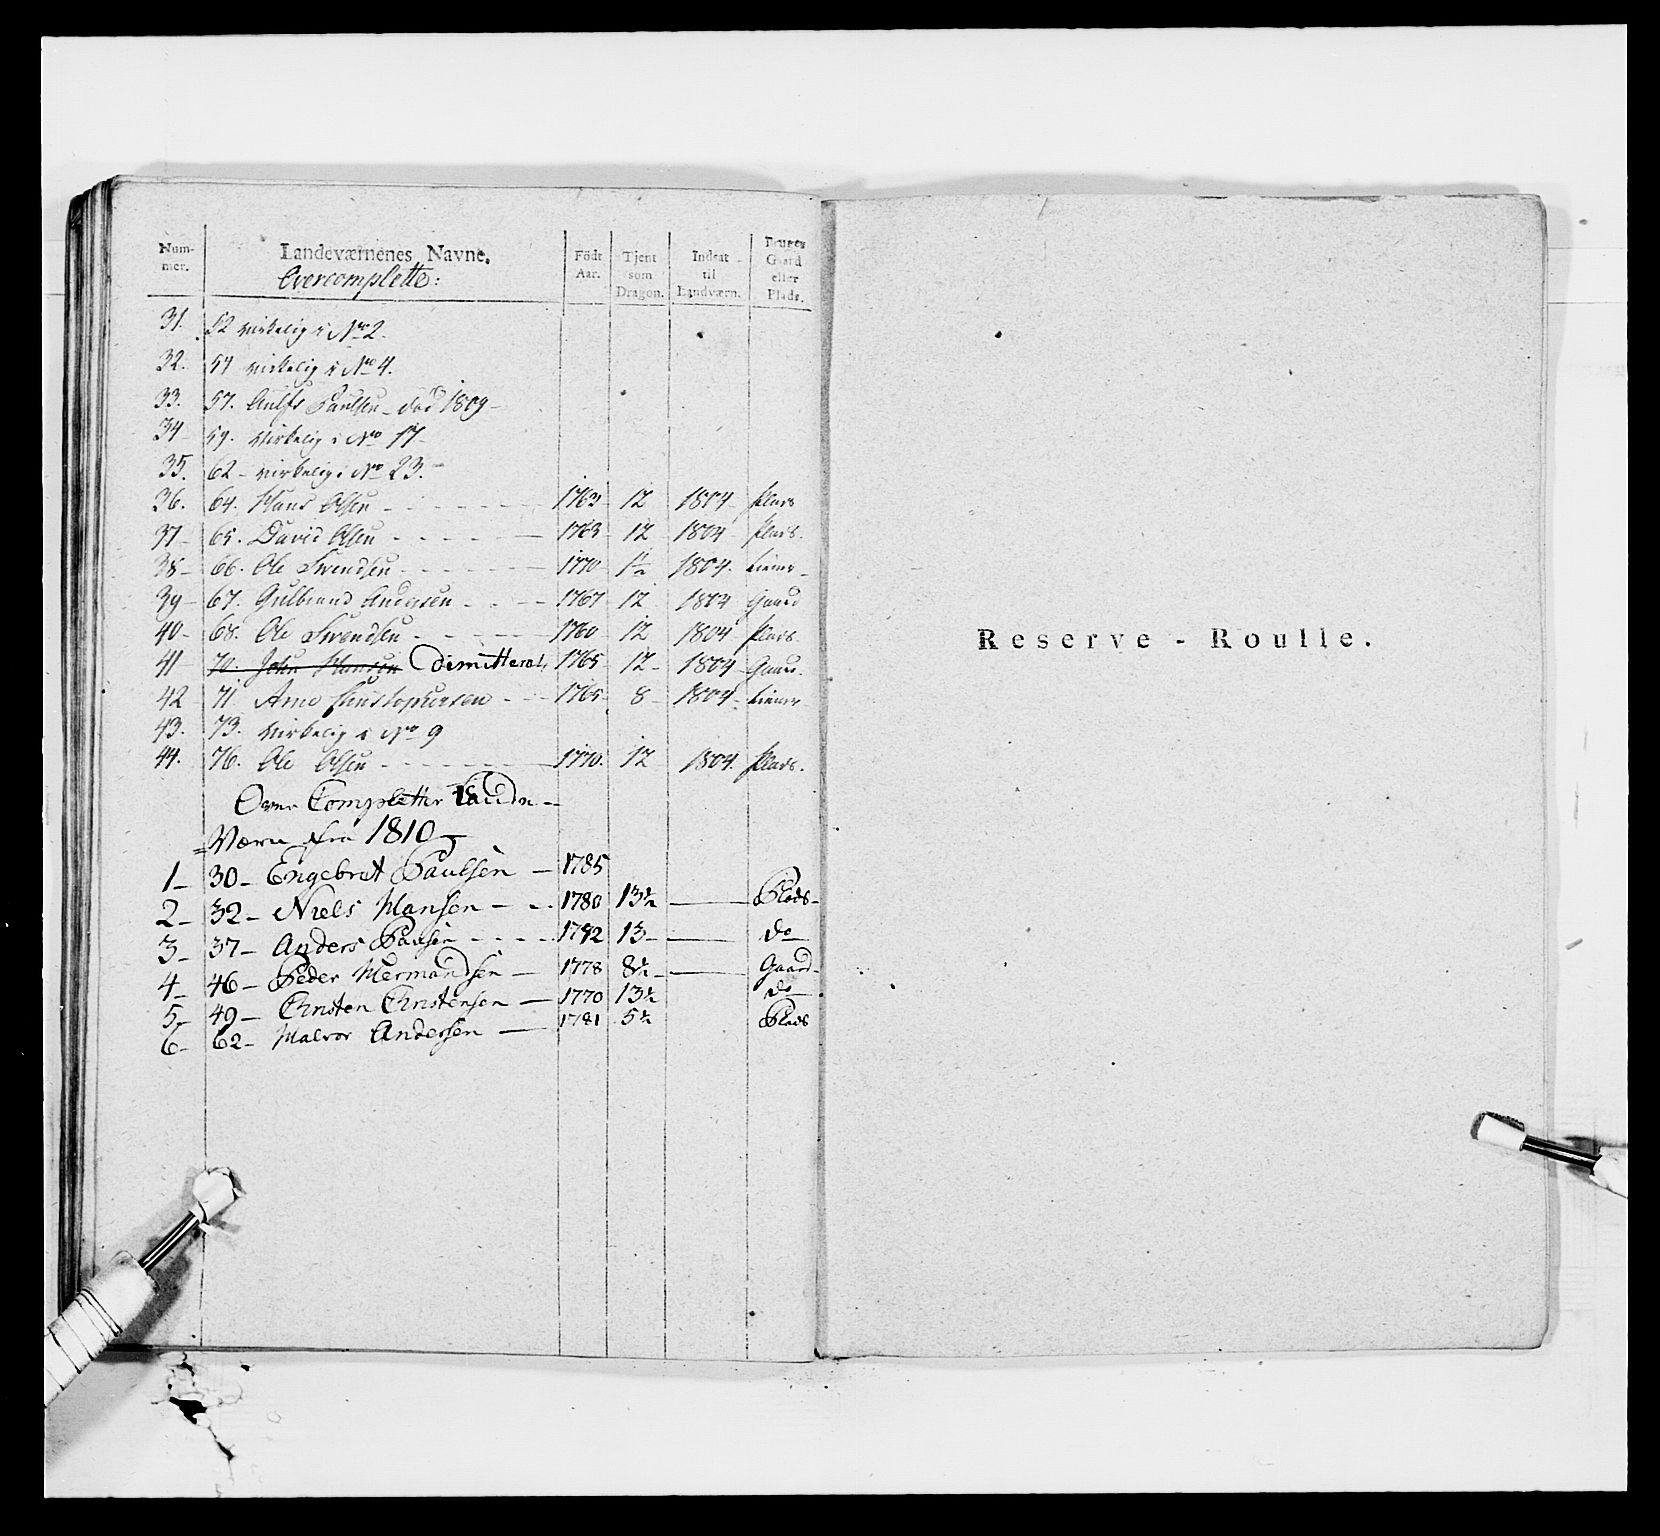 Num-
mer.
Landeværnenes Navne.
Overcomplette:
Födt
Aar.
Tjent
som
Dragon.
Indsat
til
Landværn.
Bruger
Gaard
eller
Plads.
31. 52 virkelig i No 2.
32. 54 virkelig i No 4.
33. 57. Paulsen - död 1809 -
34 - 59. virkelig i No 17 -
35. 62 - virkelig i No 23. -
36. 64. Hans Olsen 1763 - 12 1804 - Plads
37 - 65. David Olsen 1763 - 12 1804 - Plads.
38 - 66. Ole Svendsen 1770 - 1804. -
39 - 67. Gulbrand Andersen 1767 - 12 1804 Gaard
40 - 68. Ole Svendsen 1760 - 12 1804 Plads.
41 - 70. John Hansen Dimitteret 1765 - 12 - 1804 - Gaard.
42 71 Arne Christophersen 1765 - 8 - 1804 -
43. 73. virkelig i No 9
44. 76. Ole Olsen 1770. 12 1804. Plads.
Over Completter Landn -
= Værn fra 1810 -
1 - 30 - Engebret Paulsen - 1785
2 - 32 - Niels Hansen - - 1780 13½ - Plads -
3 - 37 - Anders Paulsen - - - 13 - - do
4 - 46 - Peder Hermandsen - 1778 8½ - - Gaard -
5 - 49 - Christen Christensen - 1770 13½ do
6 - 62 - Halvor Andersen - 1781 5½ Plads
Reserve - Roulle.